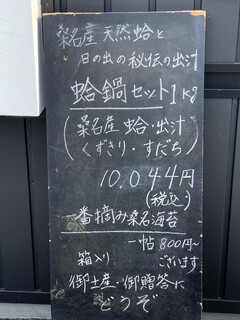 桑名産天然蛤と
日の出の秘伝の出汁
蛤鍋セット1kg
(桑名産 蛤・出汁
くずきり・すだち)
10,044円
(税込)
一番摘み桑名海苔
一帖800円~
箱入り ございます
御土産・御贈答に
どうぞ